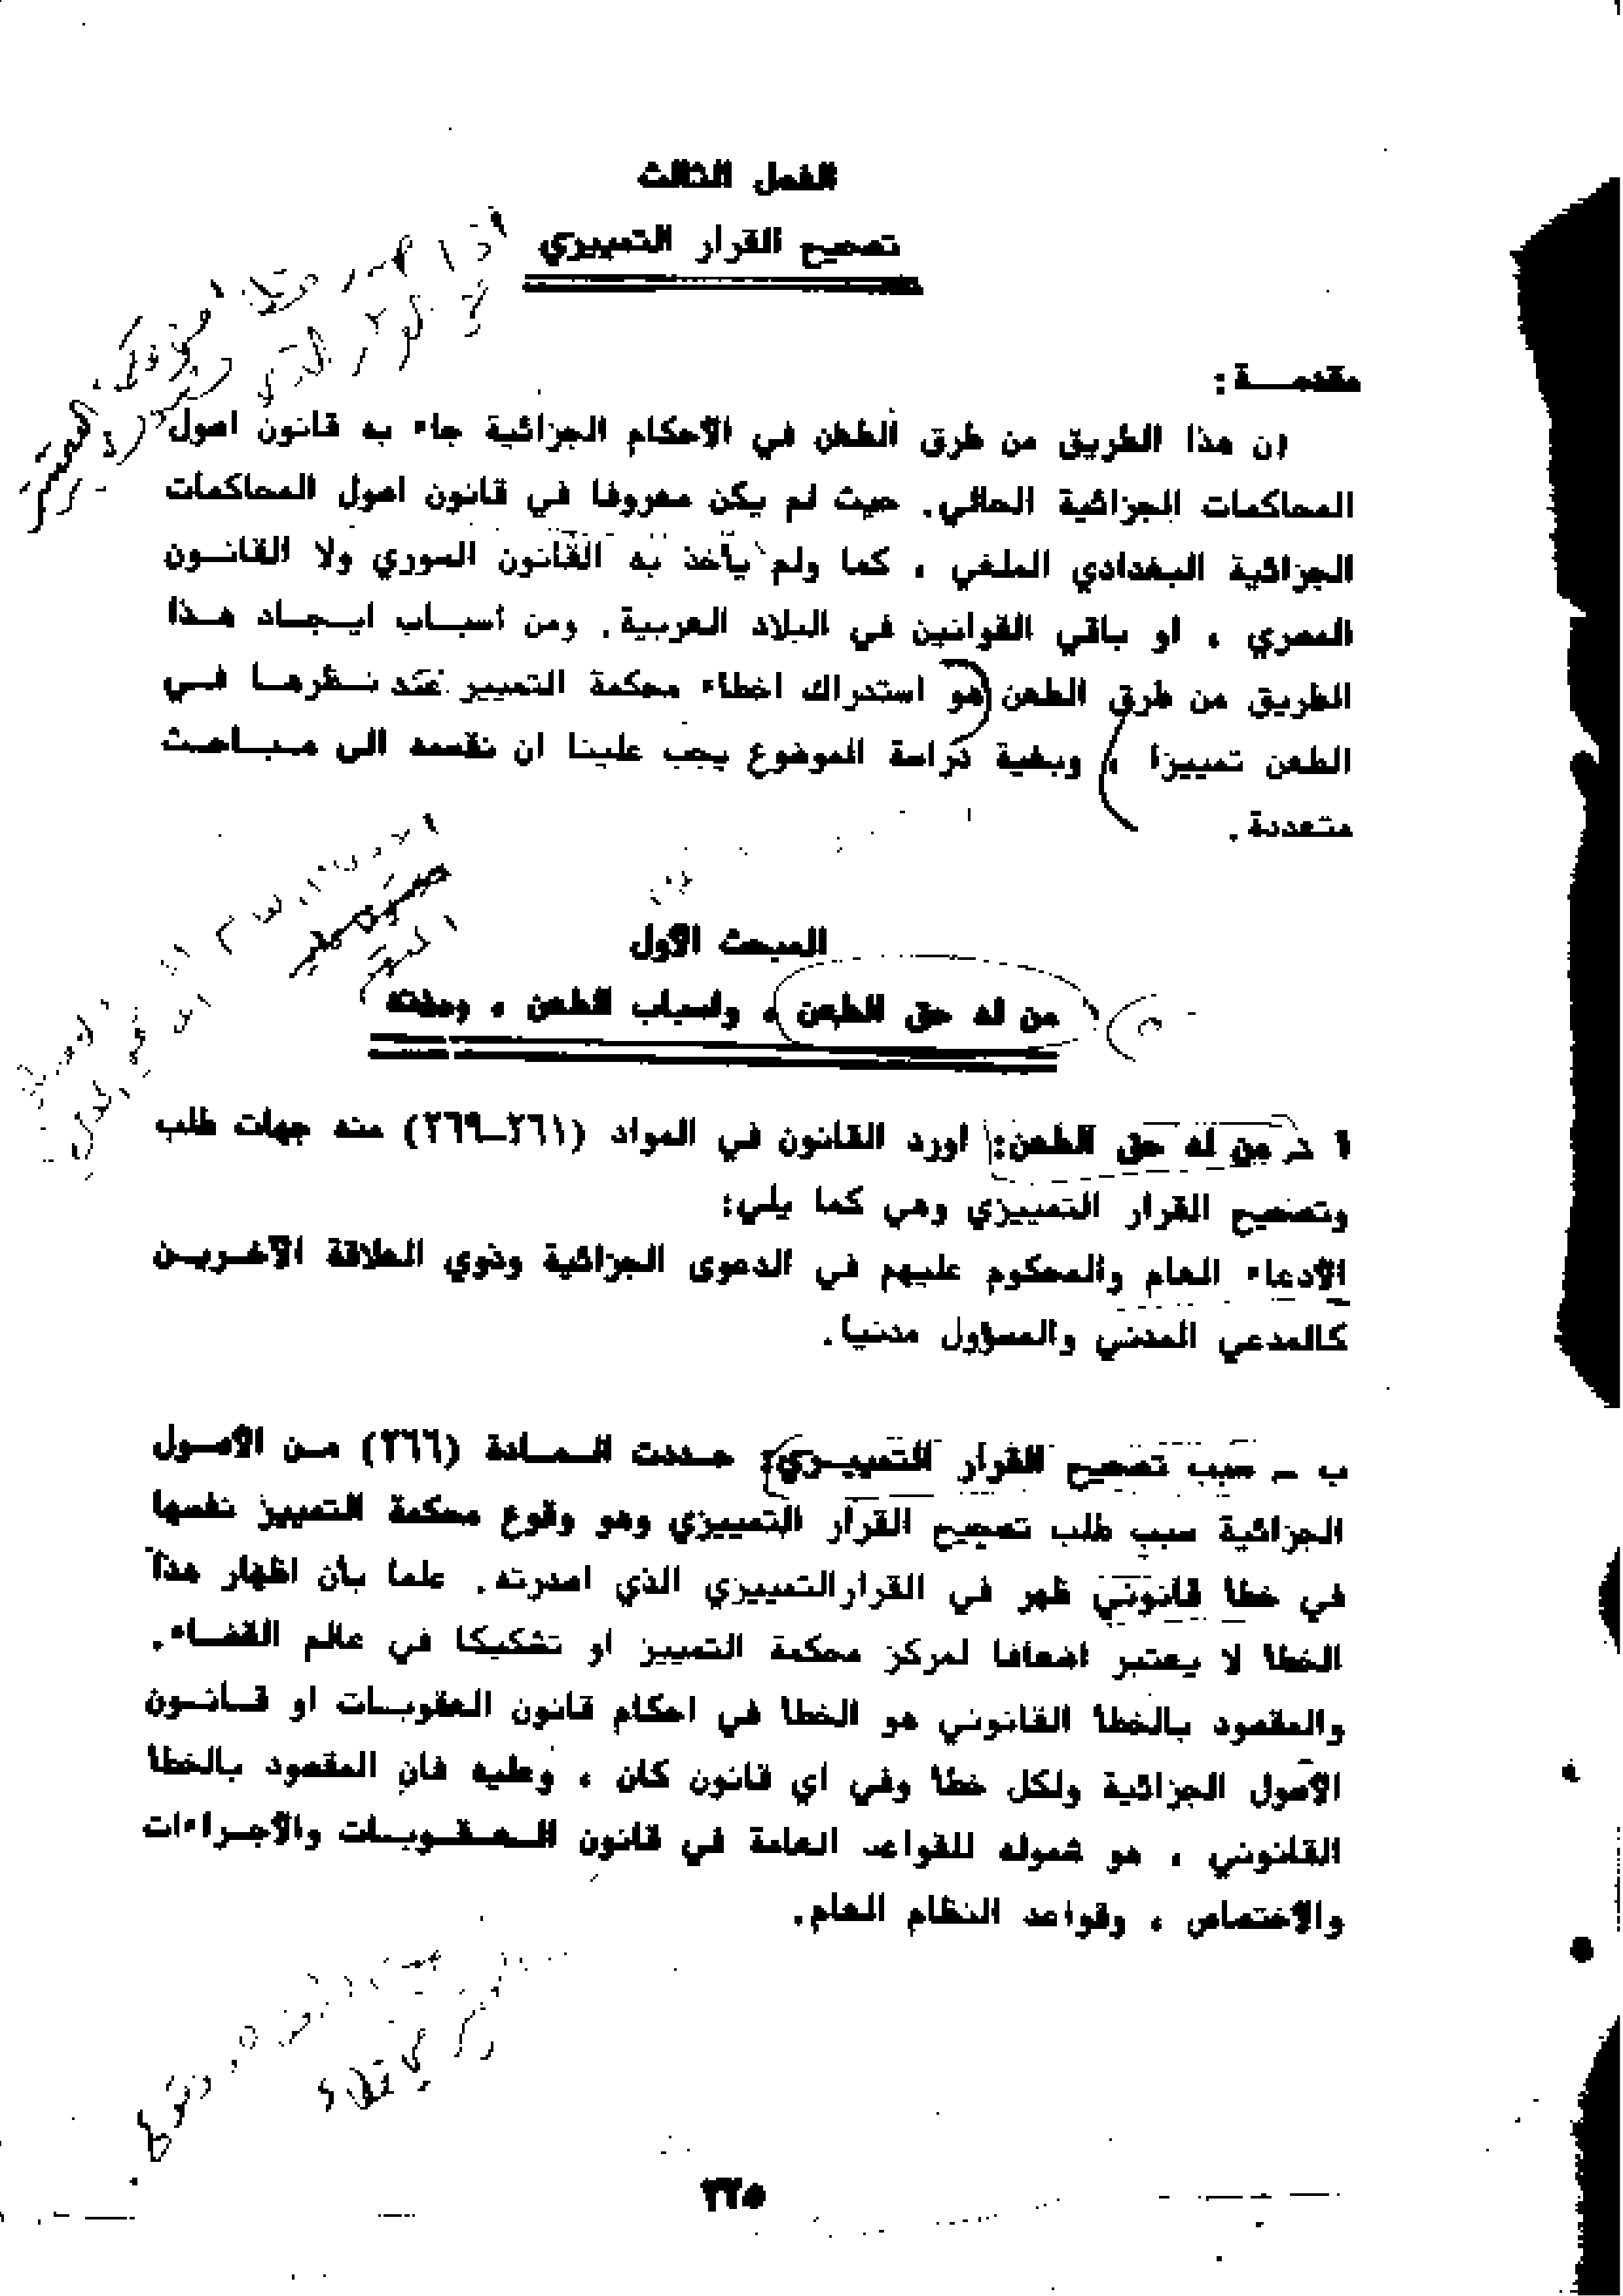 الفصل الثالث
تصحيح القرار التمييزي
مقدمــة :
ان هذا الطريق من طرق الطعن في الأحكام الجزائية جاء به قانون اصول
المحاكمات الجزائية الحالي. حيث لم يكن معروفا في قانون اصول المحاكمات
الجزائية البغدادي الملغي ، كما ولم يأخذ به القانون السوري ولا القانــون
المصري ، او باقي القوانين في البلاد العربية. ومن أسبــاب ايـجــاد هــذا
الطريق من طرق الطعن هو استدراك اخطاء محكمة التمييز عند نــظرهــا فــي
الطعن تمييزا ، وبغية دراسة الموضوع يجب علينا ان نقسمه الى مـبــاحــث
متعددة .
المبحث الأول
من له حق الطعن ، واسباب الطعن ، ومدته
١ ـ من له حق الطعن: اورد القانون في المواد (٢٦١–٢٦٩) منه جهات طلب
وتصحيح القرار التمييزي وهي كما يلي:
الأدعاء العام والمحكوم عليهم في الدعوى الجزائية وذوي العلاقة الآخــريــن
كالمدعي المدني والمسؤول مدنيا.
ب ــ سبب تصحيح القرار التمييــزي: حــددت الــمــادة (٢٦٦) مــن الأصــول
الجزائية سبب طلب تصحيح القرار التمييزي وهو وقوع محكمة التمييز نفسها
في خطا قانوني ظهر في القرارالتمييزي الذي اصدرته. علما بأن اظهار هذا
الخطا لا يعتبر اضعافا لمركز محكمة التمييز او تشكيكا في عالم القضــاء.
والمقصود بالخطا القانوني هو الخطا في احكام قانون العقوبــات او قــانــون
الأصول الجزائية ولكل خطا وفي اي قانون كان ، وعليه فان المقصود بالخطا
القانوني ، هو شموله للقواعد العامة في قانون الــعــقــوبــات والأجــراءات
والاختصاص ، وقواعد النظام العام.
٢٢٥